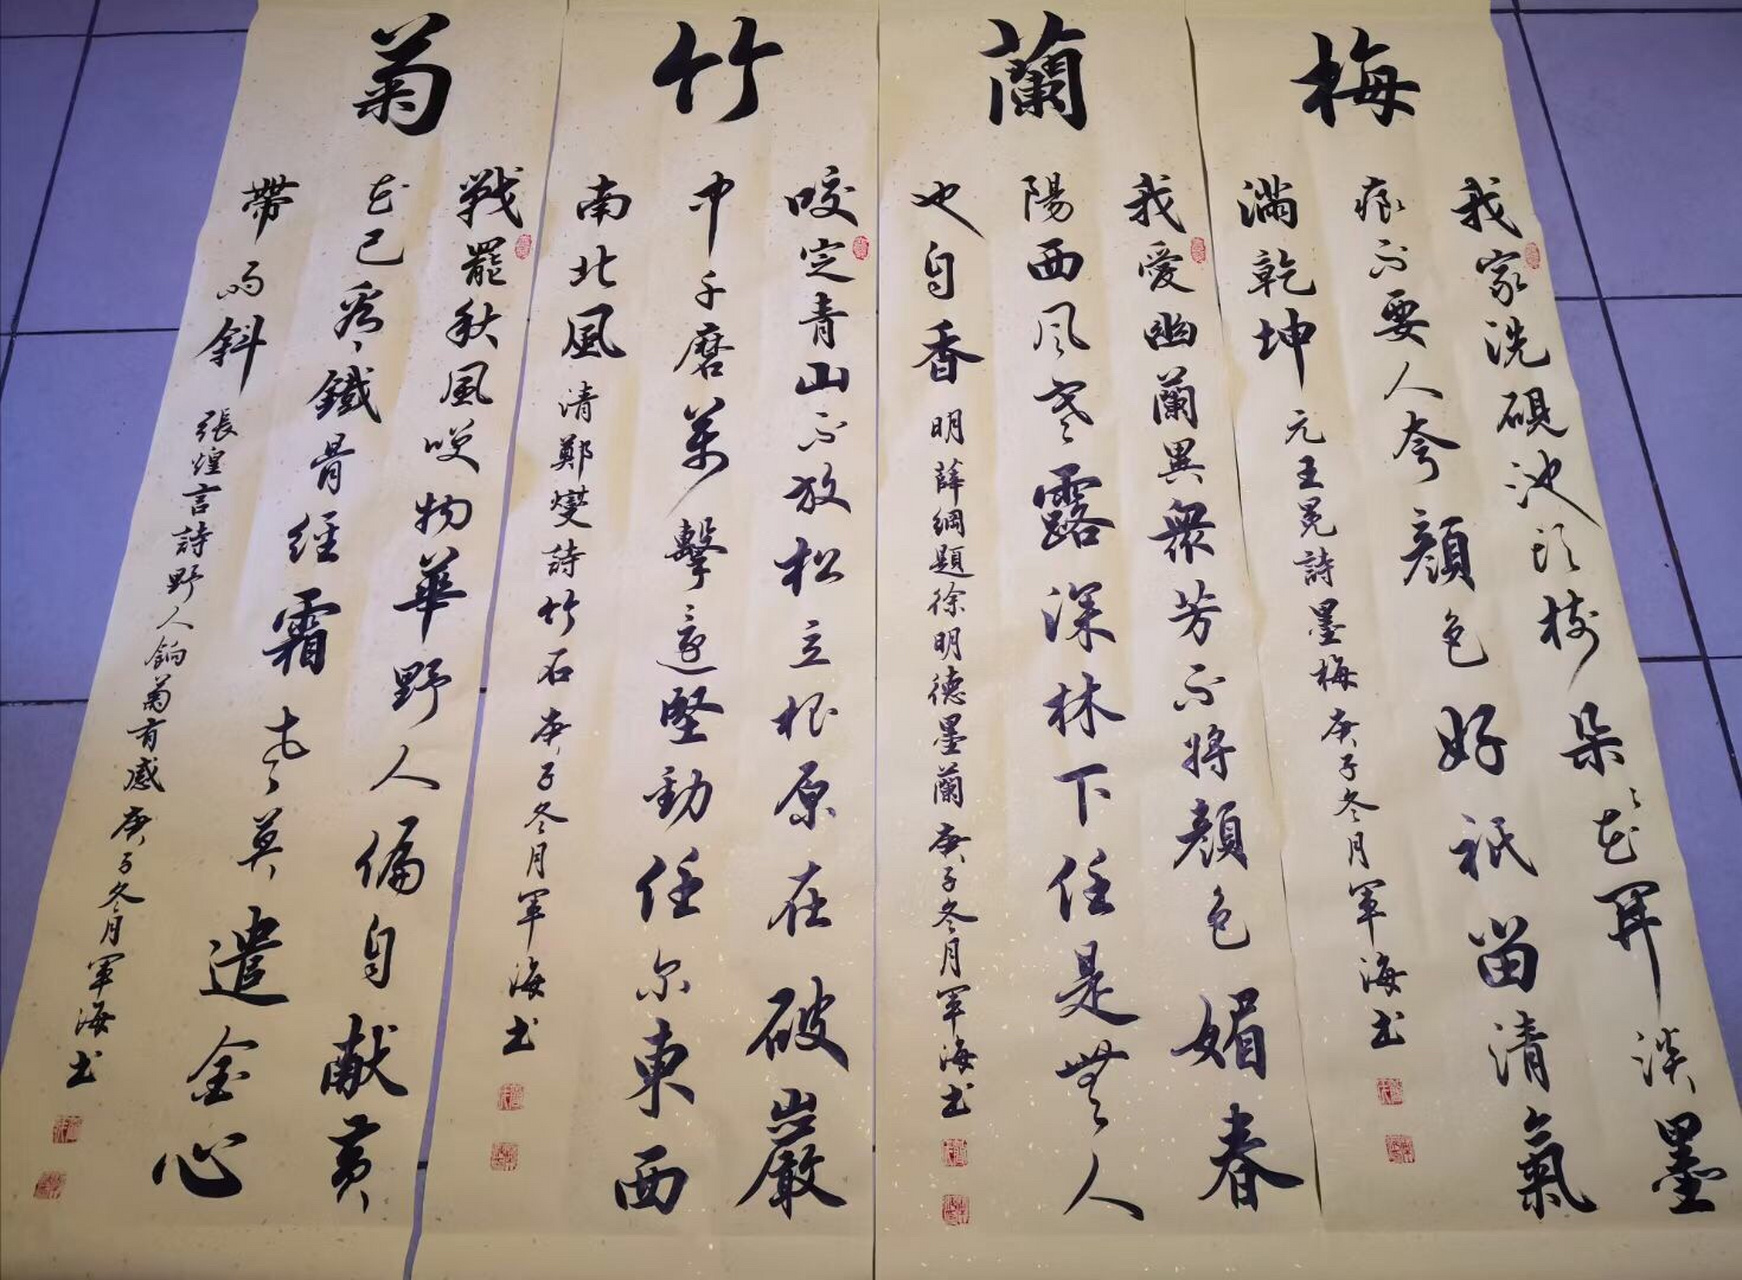 梅
我家洗硯池頭樹朵々花開淡墨
痕不要人夸顔色好祇留清氣
滿乾坤 元王冕詩墨梅 庚子冬月軍海书
蘭
我愛幽蘭異衆芳不將顔色媚春
陽西风寒露深林下任是無人
也自香 明薛綱題徐明德墨蘭 庚子冬月軍海书
竹
咬定青山不放松立根原在破巖
中千磨萬擊還堅勁任尔東西
南北風 清鄭燮詩竹石 庚子冬月軍海书
菊
戰罷秋風咲物華野人偏自献黄
花已看鐵骨經霜老莫遣金心
帶雨斜 張煌言詩野人餉菊有感 庚子冬月軍海书